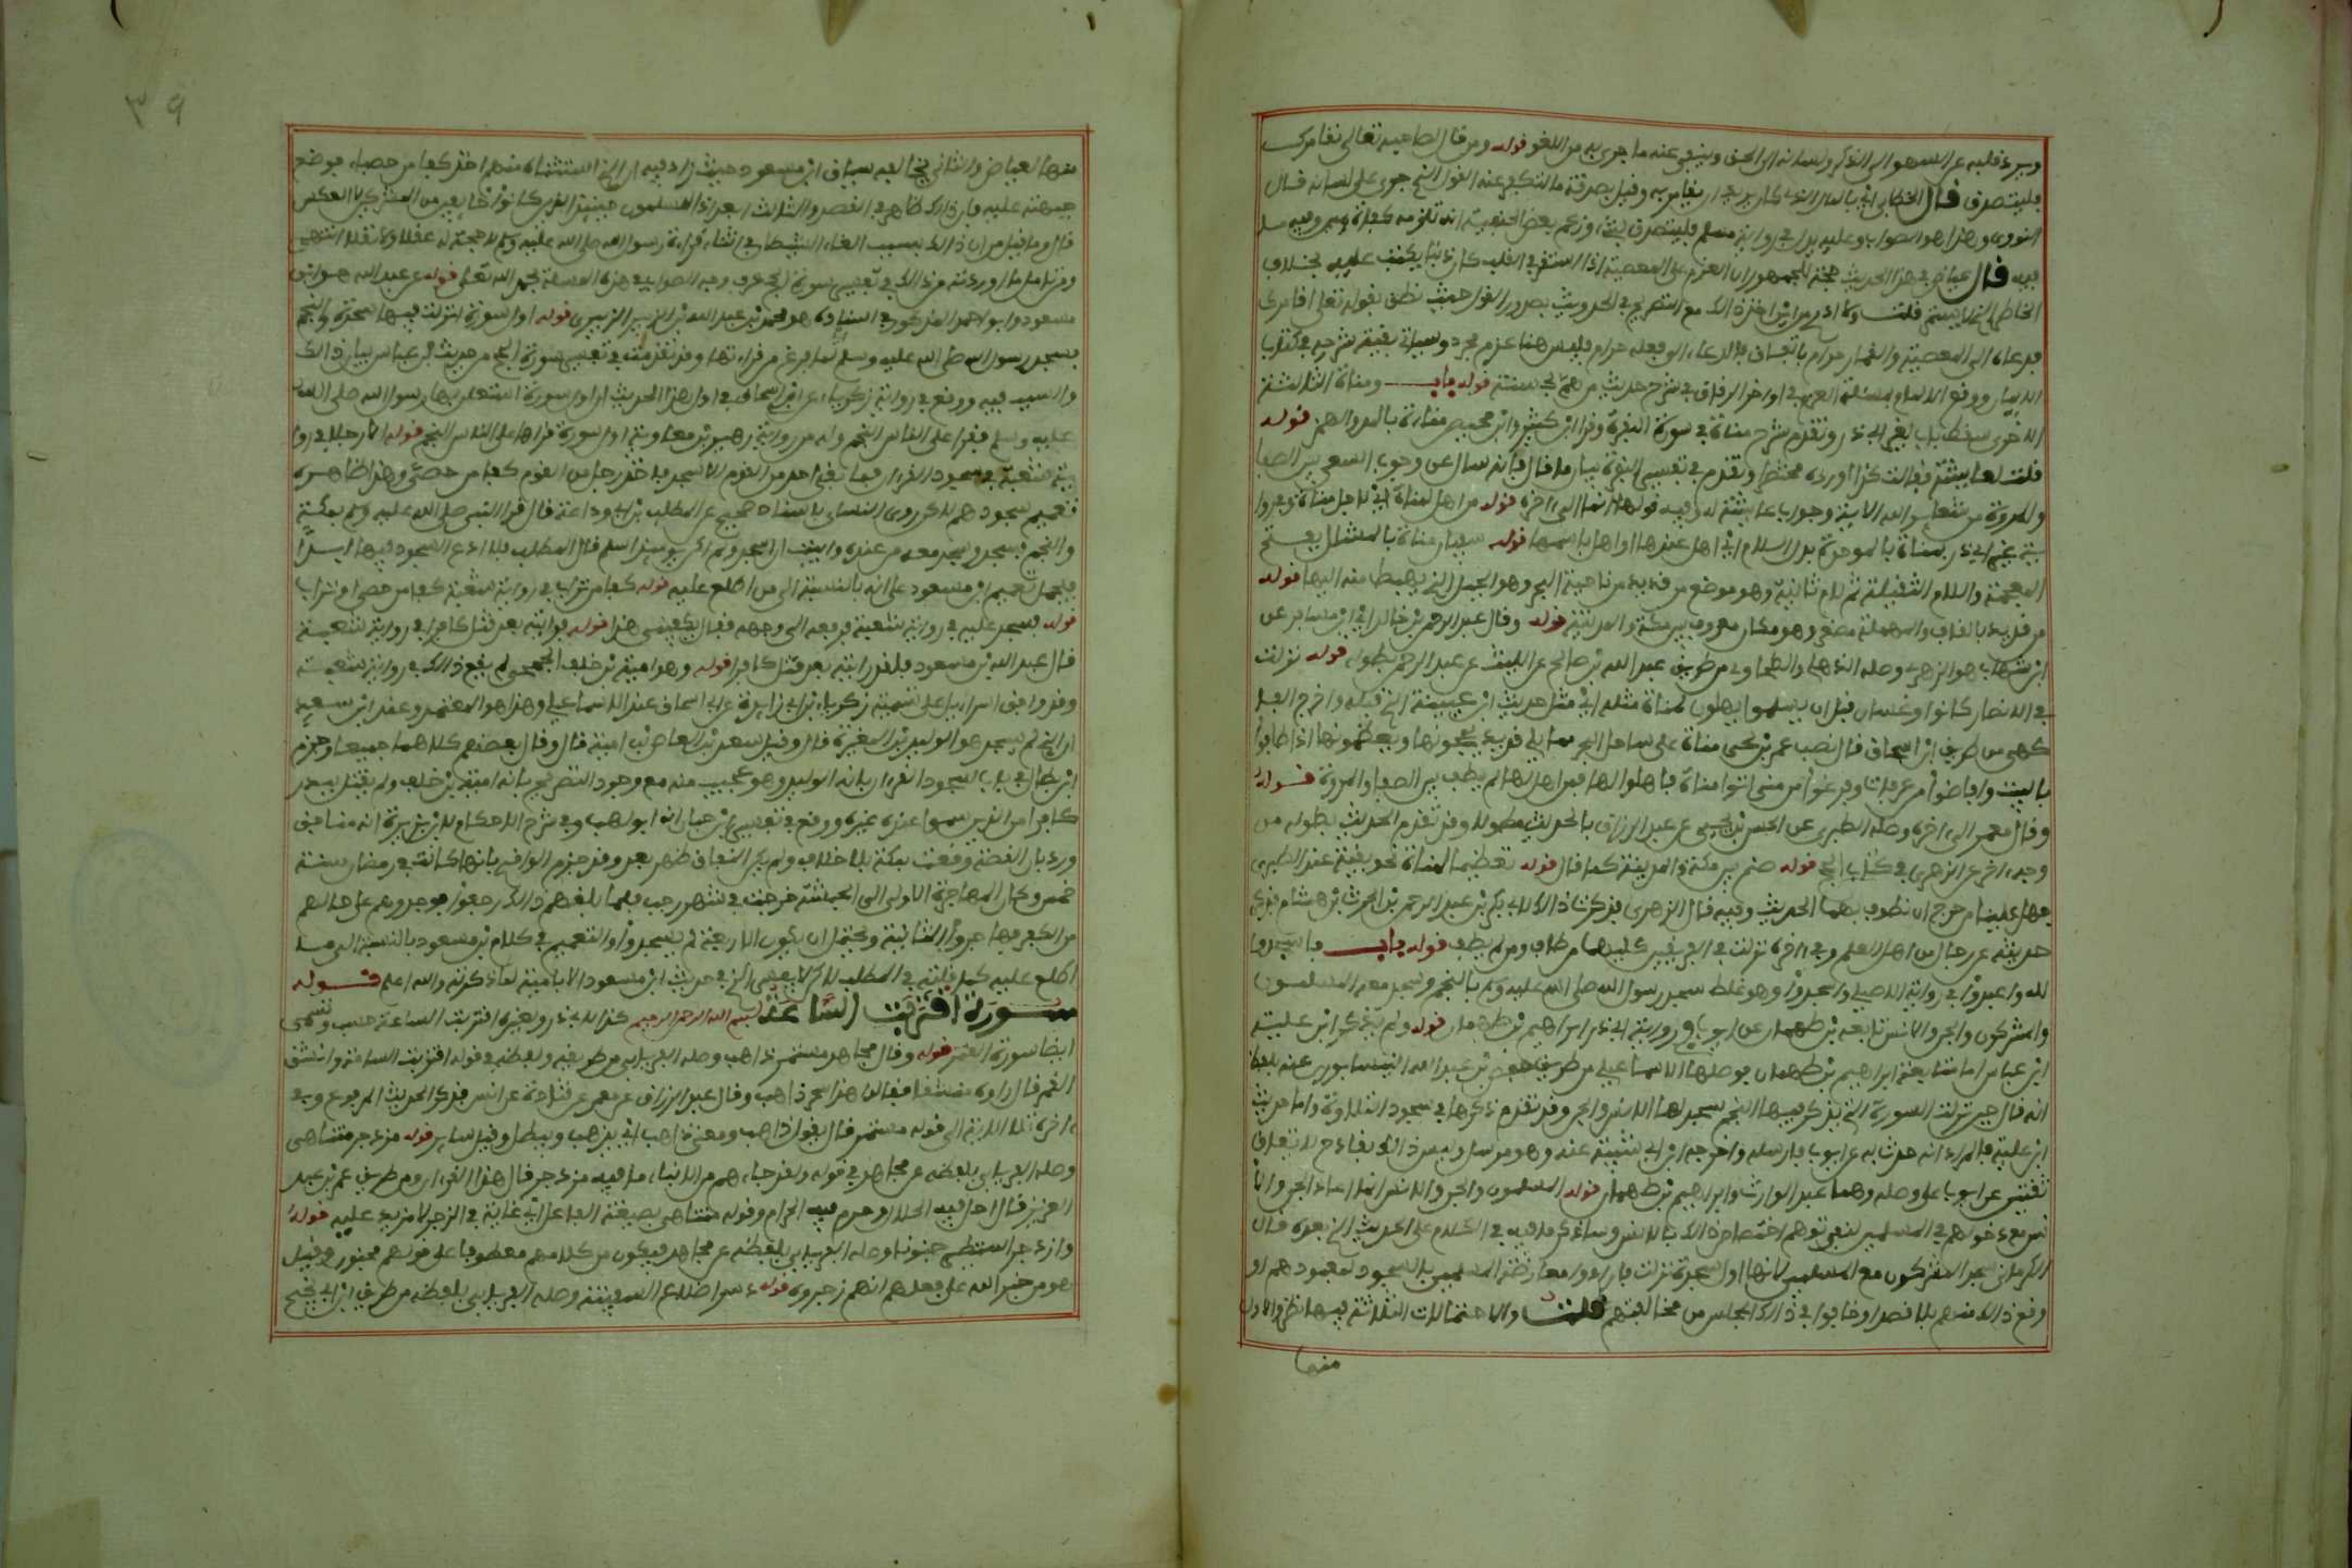 ويرد قلبه عن السهو الى الذكر ولسانه الى الحق وينفي عنه ما جرى به من اللغو قوله ومن قال لصاحبه تعالى نقامرك
فليتصدق قال الخطابي اي بالمال الذي كان يريد ان يقامر به وقيل بصدقة ما لتكفر عنه القول الذي جرى على لسانه قال
النووي وهذا هو الصواب وعليه يدل في رواية مسلم فليتصدق بشيء وزعم بعض الحنفية انه تلزمه كفارة يمين وفيه ما
فيه قال عياض في هذا الحديث حجة للجمهور ان العزم على المعصية اذا استقر في القلب كان ذنبا يكتب عليه بخلاف
الخاطر الذي لا يستمر قلت ولا ادري من اين اخذ ذلك مع التصريح في الحديث بصدور القول حيث نطق بقوله تعالى اقامرك
فدعاه الى المعصية والقمار حرام باتفاق فالدعاء الى فعله حرام فليس هنا عزم مجرد وسياتي بقية شرحه في كتاب
الايمان ووقع الالمام بمسئلة العزم في اواخر الرقاق في شرح حديث من هم بحسنة قوله باب ومناة الثالثة
الاخرى سقط باب لغير ابي ذر وتقدم شرح مناة في سورة النجم وقرا ابن كثير وابن محيصن مناءة بالمد والهمز قوله
قلت لعايشة فقالت كذا اورده مختصرا وتقدم في تفسير البقرة بيان ما قال وانه سال عن وجوب السعي بين الصفا
والمروة من شعاير الله الاية وجواب عايشة له وفيه قولها انما الى اخره قوله من اهل لمناة اي لاجل مناة
ية غير ابي ذر بمناة بالموحدة بدل اللام اي اهل عندها او اهل باسمها قوله سفيان مناة بالمشلل بفتح
المعجمة واللام الثقيلة ثم لام ثانية وهو موضع من قديد من ناحية البحر وهو الجبل الذي يهبط منه اليها قوله
من قديد بالقاف والمهملة مصغر وهو مكان معروف بين مكة والمدينة قوله وقال عبد الرحمن بن خالد اي ابن مسافر عن
ابن شهاب هو الزهري وصله الذهلي والطحاوي من طريق عبد الله بن صالح عن الليث عن عبد الرحمن بطوله قوله نزلت
في الانصار كانوا وغسان قبل ان يسلموا يهلون لمناة مثله اي مثل حديث ابن عيينة الذي قبله واخرج الفا
كهي من طريق ابن اسحاق قال نصب عمرو بن لحي مناة على ساحل البحر مما يلي قديد يحجونها ويعظمونها اذا طافوا
بالبيت وافاضوا من عرفات وفرغوا من منى اتوا مناة فاهلوا لها فمن اهل لها لم يطف بين الصفا والمروة قوله
وقال معمر الى اخره وصله الطبري عن الحسن بن يحيى عن عبد الرزاق بالحديث مطولا وقد تقدم الحديث بطوله من
وجه اخر عن الزهري في كتاب الحج قوله صنم بين مكة والمدينة كما قال قوله تعظيما لمناة نحوه بقيته عند الطبري
فهل علينا من حرج ان نطوف بهما الحديث وفيه قال الزهري فذكرت ذلك لابي بكر بن عبد الرحمن بن الحرث بن هشام فذكر
حديثه عن رجال من اهل العلم وفي اخره نزلت في الفريقين كليهما من طاف ومن لم يطف قوله باب فاسجدوا
لله واعبدوا في رواية الاصيلي واسجدوا وهو غلط سجد رسول الله صلى الله عليه وسلم بالنجم وسجد معه المسلمون
والمشركون والجن والانس تابعه بن طهمان عن ايوب في رواية ابي ذر ابراهيم بن طهمان قوله ولم يذكر ابن علية
ابن عباس اما متابعة ابراهيم بن طهمان فوصلها الاسماعيلي من طريق حفص بن عبد الله النيسابوري عنه بلفظ
انه قال حين نزلت السورة التي يذكر فيها النجم سجد لها الانس والجن وقد تقدم ذكرها في سجود التلاوة واما حديث
ابن علية فالمراد انه حدث به عن ايوب فارسله واخرجه ابن ابي شيبة عنه وهو مرسل وليس ذلك بقادح لاتفاق
ثقتين عن ايوب على وصله وهما عبد الوارث وابراهيم بن طهمان قوله المسلمون والجن والانس انما اعاد الجن والا
نس مع دخولهم في المسلمين لنفي توهم اختصاص ذلك بالانس وساذكر ما فيه في الكلام على الحديث الذي بعده قال
الكرماني سجد المشركون مع المسلمين لانها اول سجدة نزلت فارادوا معارضة المسلمين بالسجود لمعبودهم او
وقع ذلك منهم بلا قصد او خافوا في ذلك المجلس من مخالفتهم قلت والاحتمالات الثلاثة فيها نظر والاول
منها
٣٩
منها لعياض والثاني يخالفه سياق ابن مسعود حيث زاد فيه ان الذي استثناه منهم اخذ كفا من حصباء فوضع
جبهته عليه فان ذلك ظاهر في القصد والثالث ابعد اذ المسلمون حينئذ الذين كانوا خايفين من المشركين لا العكس
قال وما قيل من ان ذلك بسبب القاء الشيطان في اثناء قراءة رسول الله صلى الله عليه وسلم لا صحة له عقلا ولا نقلا انتهى
ومن تامل ما اوردته من ذلك في تفسير سورة الحج عرف وجه الصواب في هذه المسئلة بحمد الله تعالى قوله عن عبد الله هو ابن
مسعود وابو احمد المذكور في اسناده هو محمد بن عبد الله بن الزبير الزبيري قوله اول سورة انزلت فيها سجدة والنجم
فسجد رسول الله صلى الله عليه وسلم لما فرغ من قراءتها وقد تقدمت في تفسير سورة الحج من حديث ابن عباس بيان ذلك
والسبب فيه ووقع في رواية زكرياء عن ابي اسحاق في اول هذا الحديث ان اول سورة استعلن بها رسول الله صلى الله
عليه وسلم فقرا على الناس النجم وله من رواية زهير بن معاوية اول سورة قراها على الناس النجم قوله الا رجلا في روا
ية شعبة في سجود القران فما بقي احد من القوم الا سجد فاخذ رجل من القوم كفا من حصى وهذا ظاهره
تعميم سجودهم لكن روى النسائي باسناد صحيح عن المطلب بن ابي وداعة قال قرا النبي صلى الله عليه وسلم بمكة
والنجم فسجد وسجد معه من عنده وابيت ان اسجد ولم يكن يومئذ اسلم قال المطلب فلا ادع السجود فيها ابدا
فيحمل تعميم ابن مسعود على انه بالنسبة الى من اطلع عليه قوله كفا من تراب في رواية شعبة كفا من حصى او تراب
قوله فسجد عليه في رواية شعبة فرفعه الى وجهه فقال يكفيني هذا قوله فرايته بعد قتل كافرا في رواية شعبة
قال عبد الله بن مسعود فلقد رايته بعد قتل كافرا قوله وهو امية بن خلف الجمحي لم يقع ذلك في رواية شعبة
وقد وافق اسراءيل على تسمية زكرياء بن ابي زايدة عن ابي اسحاق عند الاسماعيلي وهذا هو المعتمد وعند ابن سعد
ان الذي لم يسجد هو الوليد بن المغيرة قال وقيل سعيد بن العاص بن امية قال وقال بعضهم كلاهما جميعا وجزم
ابن بطال في باب سجود القران بانه الوليد وهو عجيب منه مع وجود التصريح بانه امية بن خلف ولم يقتل ببدر
كافرا من الذين سموا عنده غيره ووقع في تفسير ابن حبان انه ابو لهب وفي شرح الاحكام لابن بزيزة انه منافق
ورد بان القصة وقعت بمكة بلا خلاف ولم يكن النفاق ظهر بعد وقد جزم الواقدي بانها كانت في رمضان سنة
خمس وكان المهاجرة الاولى الى الحبشة خرجت في شهر رجب فلما بلغهم ذلك رجعوا فوجدوهم على حالهم
من الكفر فهاجروا الثانية ويحتمل ان يكون الاربعة لم يسجدوا والتعميم في كلام بن مسعود بالنسبة الى ما
اطلع عليه كما قلته في المطلب لكن لا يفسر الذي في حديث ابن مسعود الا بامية لما ذكرته والله اعلم قوله
سورة اقتربت الساعة بسم الله الرحمن الرحيم كذا لابي ذر ولغيره اقتربت الساعة حسب وتسمى
ايضا سورة القمر قوله وقال مجاهد مستمر ذاهب وصله الفريابي من طريقه ولفظه في قوله اقتربت الساعة وانشق
القمر قال راوه منشقا فقالوا هذا سحر ذاهب وقال عبد الرزاق عن معمر عن قتادة عن انس فذكر الحديث المرفوع وفي
اخره تلا الاية الى قوله مستمر قال يقول ذاهب ومعنى ذاهب اي يذهب ويبطل وقيل ساير قوله مزدجر متناهى
وصله الفريابي بلفظه عن مجاهد في قوله ولقد جاءهم من الانباء ما فيه مزدجر قال هذا القران ومن طريق عمر بن عبد
العزيز قال احل فيه الحلال وحرم فيه الحرام وقوله متناهى بصيغة الفاعل اي غاية في الزجر لا مزيد عليه قوله
وازدجر استطير جنونا وصله الفريابي بلفظه عن مجاهد فيكون من كلامهم معطوفا على قولهم مجنون وقيل
هو من خبر الله على فعلهم انهم زجروه قوله دسر اضلاع السفينة وصله الفريابي بلفظه من طريق ابن ابي نجيح